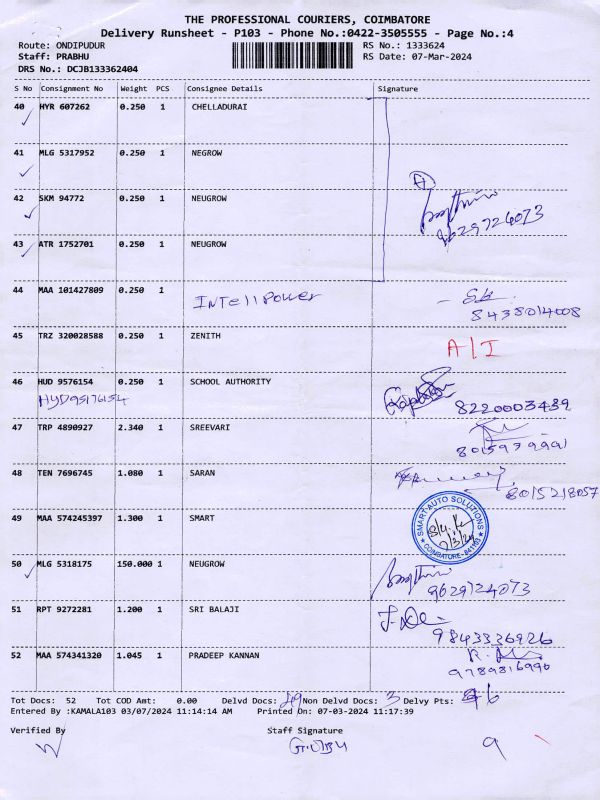 THE PROFESSIONAL COURIERS, COIMBATORE
Delivery Runsheet - P103 - Phone No.:0422-3505555 - Page No.:4
Route: ONDIPUDUR RS No.: 1333624
Staff: PRABHU RS Date: 07-Mar-2024
DRS No.: DCJB133362404
S No Consignment No Weight PCS Consignee Details Signature
40 HYR 607262 0.250 1 CHELLADURAI
41 MLG 5317952 0.250 1 NEGROW
42 SKM 94772 0.250 1 NEUGROW
9629724073
43 ATR 1752701 0.250 1 NEUGROW
44 MAA 101427809 0.250 1 INTellPower
8438014008
45 TRZ 320028588 0.250 1 ZENITH A/I
46 HUD 9576154 0.250 1 SCHOOL AUTHORITY
HYD9576154 8220003439
47 TRP 4890927 2.340 1 SREEVARI
8015979991
48 TEN 7696745 1.080 1 SARAN
8015218057
49 MAA 574245397 1.300 1 SMART SMART-AUTO SOLUTIONS
7/3/24
50 MLG 5318175 150.000 1 NEUGROW
9629724073
51 RPT 9272281 1.200 1 SRI BALAJI
9843336926
52 MAA 574341320 1.045 1 PRADEEP KANNAN
9789816990
Tot Docs: 52 Tot COD Amt: 0.00 Delvd Docs: 49 Non Delvd Docs: 3 Delvy Pts: 6
Entered By :KAMALA103 03/07/2024 11:14:14 AM Printed On: 07-03-2024 11:17:39
Verified By Staff Signature
9